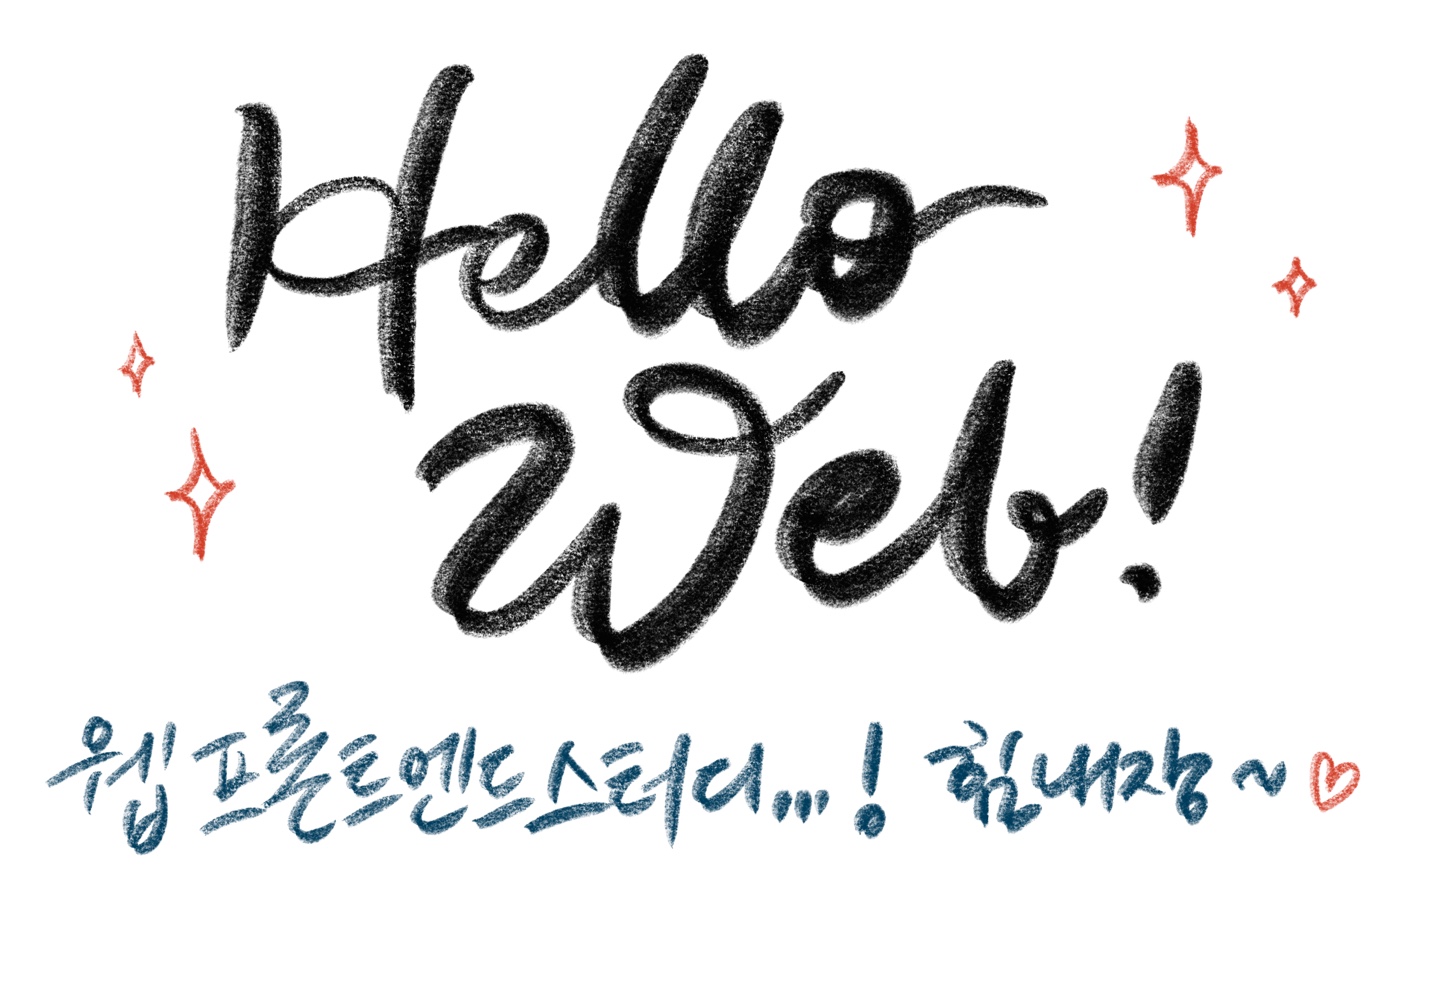 Hello
Web!
웹 프론트엔드 스터디...! 힘내장~♡